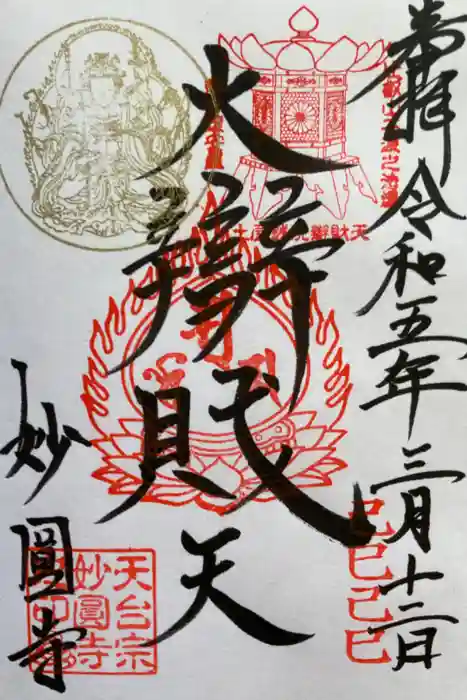 奉拝 令和五年三月十二日
己巳己巳
大辯財天
妙圓寺
天台宗
妙圓寺